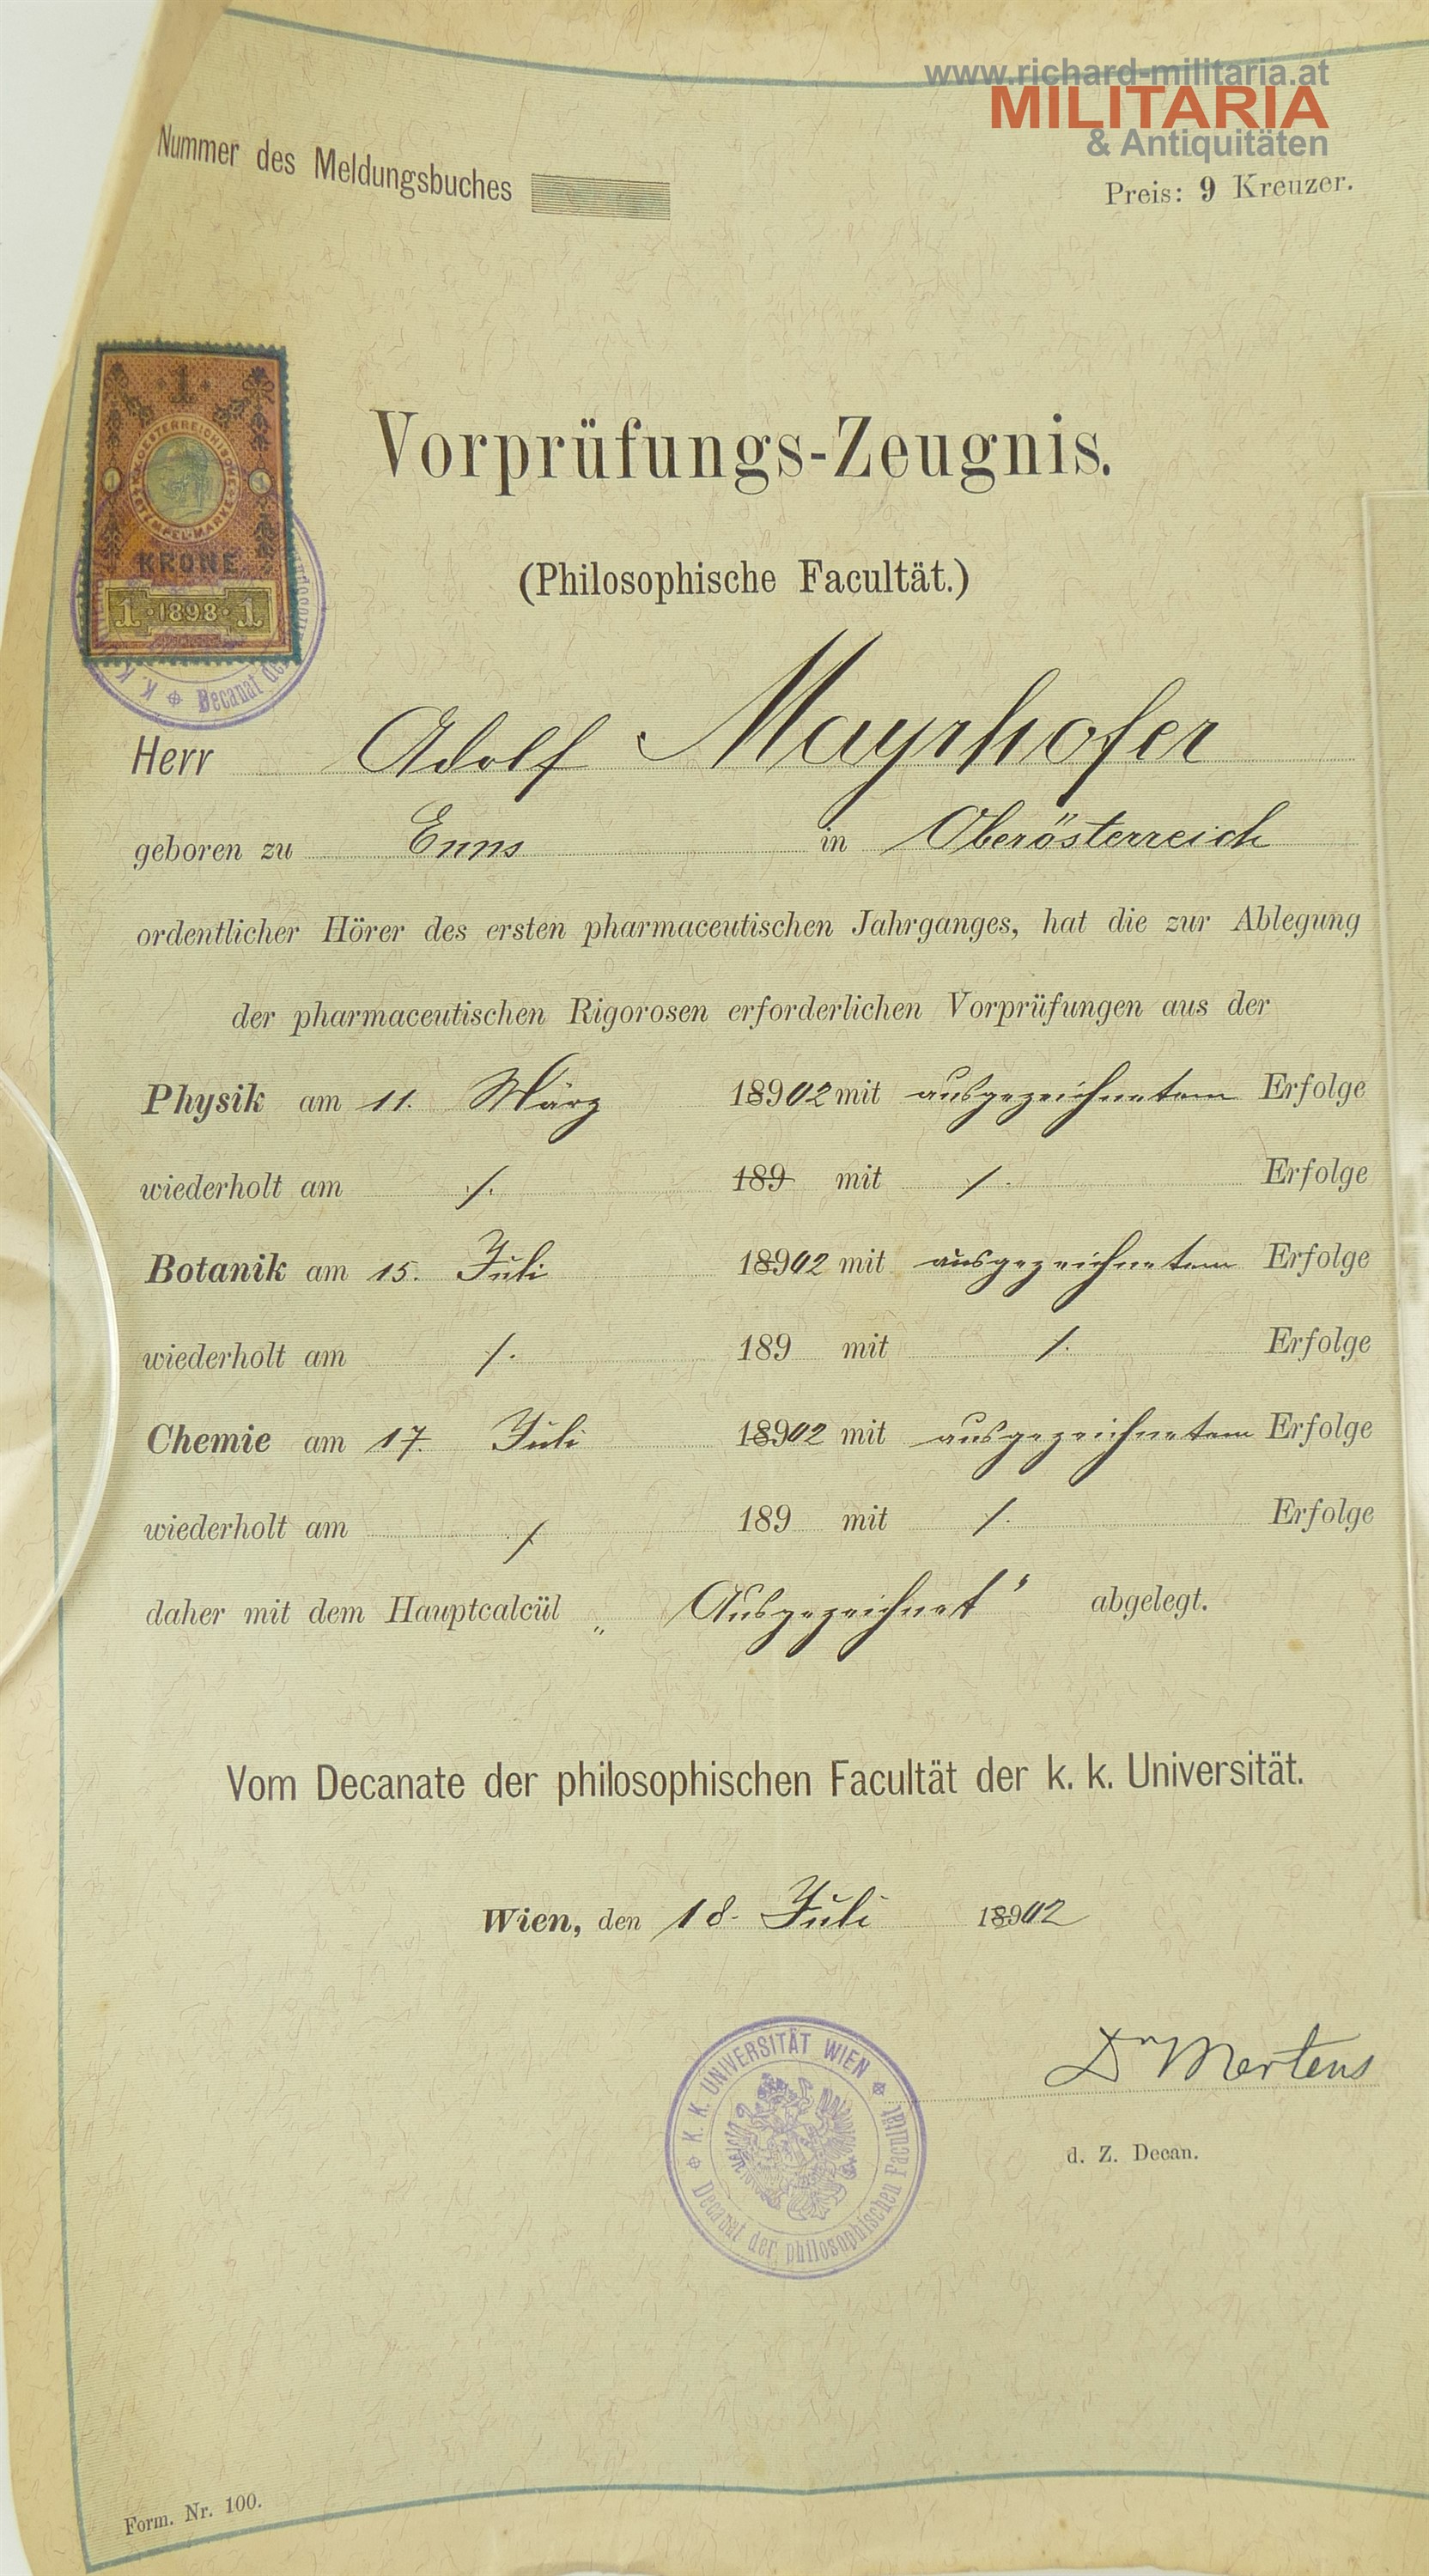 www.richard-militaria.at
MILITARIA
& Antiquitäten
Nummer des Meldungsbuches
Preis: 9 Kreuzer.
1
K.K. OESTERREICHISCHE STEMPEL-MARKE
1 1
KRONE
1 · 1898 · 1
K. K. Decanat de
Vorprüfungs-Zeugnis.
(Philosophische Facultät.)
Herr Adolf Mayrhofer
geboren zu Enns in Oberösterreich
ordentlicher Hörer des ersten pharmaceutischen Jahrganges, hat die zur Ablegung
der pharmaceutischen Rigorosen erforderlichen Vorprüfungen aus der
Physik am 11. März 18902 mit ausgezeichnetem Erfolge
wiederholt am ./. 189 mit ./. Erfolge
Botanik am 15. Juli 18902 mit ausgezeichnetem Erfolge
wiederholt am ./. 189 mit ./. Erfolge
Chemie am 17. Juli 18902 mit ausgezeichnetem Erfolge
wiederholt am ./. 189 mit ./. Erfolge
daher mit dem Hauptcalcül „Ausgezeichnet" abgelegt.
Vom Decanate der philosophischen Facultät der k. k. Universität.
Wien, den 18. Juli 18902
K. K. UNIVERSITÄT WIEN
Decanat der philosophischen Facultät
Dr Mertens
d. Z. Decan.
Form. Nr. 100.